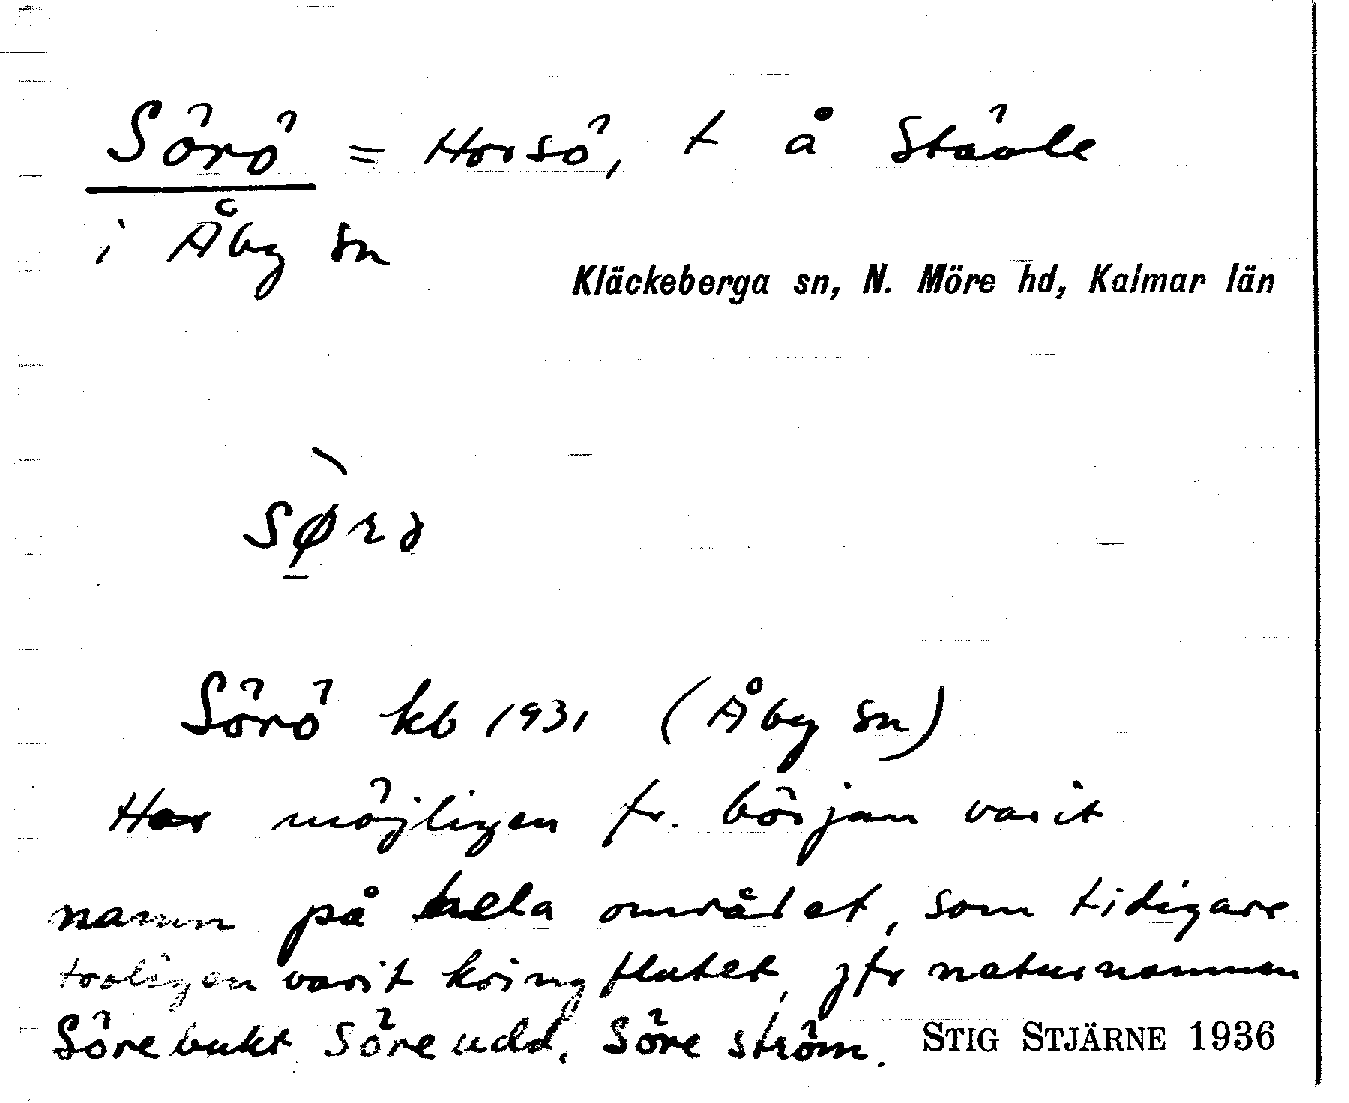 Sörö = Horsö, t å Stävle
i Åby sn
Kläckeberga sn, N. Möre hd, Kalmar län
Sörö kb 1931 (Åby sn)
Har möjligen fr. början varit
namn på hela området, som tidigare
troligen varit kringflutet, jfr naturnamnen
Söre bukt Söre udd, Söre ström.
STIG STJÄRNE 1936